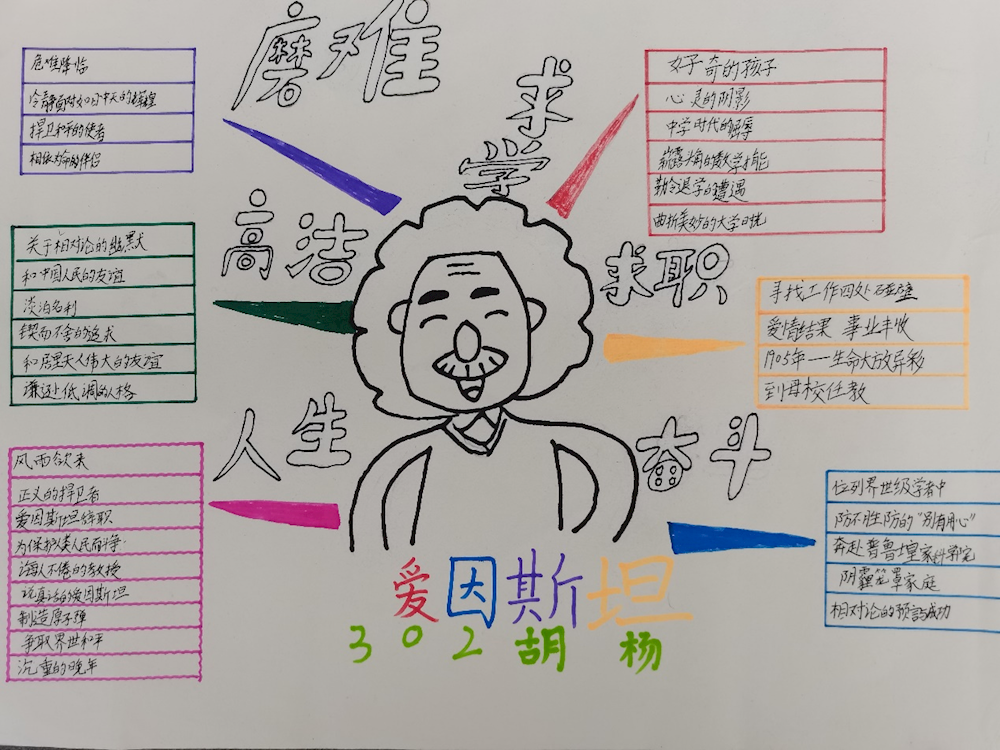 磨难
危难降临
冷静面对如日中天的辉煌
捍卫和平的使者
相依为命的伴侣
求学
好奇的孩子
心灵的阴影
中学时代的屈辱
崭露头角的数学才能
勒令退学的遭遇
曲折美妙的大学时光
高洁
关于相对论的幽默
和中国人民的友谊
淡泊名利
锲而不舍的追求
和居里夫人伟大的友谊
谦逊低调的人格
求职
寻找工作四处碰壁
爱情结果 事业丰收
1905年——生命大放异彩
到母校任教
人生
风雨欲来
正义的捍卫者
爱因斯坦辞职
为保护人类人民而争
诲人不倦的教授
说真话的爱因斯坦
制造原子弹
争取界世和平
沉重的晚年
奋斗
位列界世级学者中
防不胜防的“别有用心”
奔赴普鲁士皇家科学院
阴霾笼罩家庭
相对论的预言成功
爱因斯坦
302 胡杨